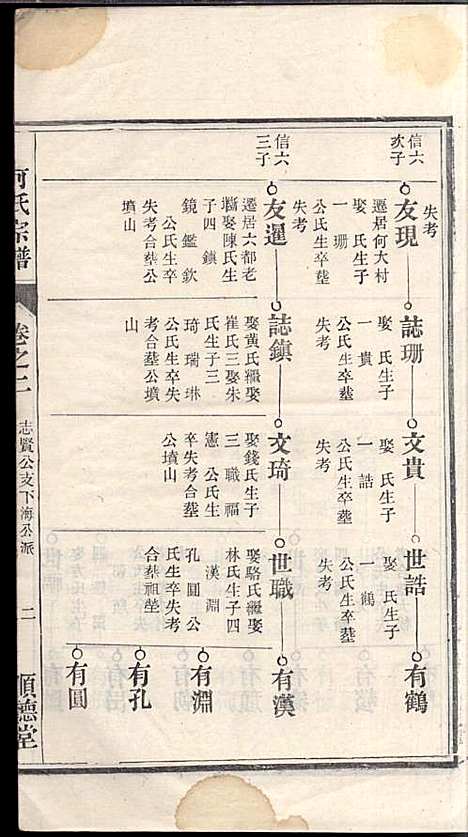 失考
信六
次子
友現
遷居何大村
娶 氏生子
一 珊
公氏生卒塟
失考
誌珊
娶 氏生子
一 貴
公氏生卒塟
失考
文貴
娶 氏生子
一 誥
公氏生卒塟
失考
世誥
娶 氏生子
一 鶴
公氏生卒塟
失考
有鶴
信六
三子
友暹
遷居六都老
墈娶陳氏生
子四 鎮
鏡 鑑 欽
公氏生卒
失考合塟公
墳山
誌鎮
娶黃氏繼娶
崔氏三娶朱
氏生子三
琦 瑞 琳
公氏生卒失
考合塟公墳
山
文琦
娶錢氏生子
三 職 福
憲 公氏生
卒失考合塟
公墳山
世職
娶駱氏繼娶
林氏生子四
漢 淵
孔 圓 公
氏生卒失考
合塟祖塋
有漢
有淵
有孔
有圓
何氏宗譜
卷之二
志賢公支下海公派
二
順德堂